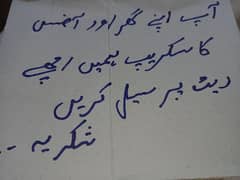 آپ اپنے گھر اور آفس
کا سکریپ ہمیں اچھے
ریٹ پر سیل کریں
شکریہ ..